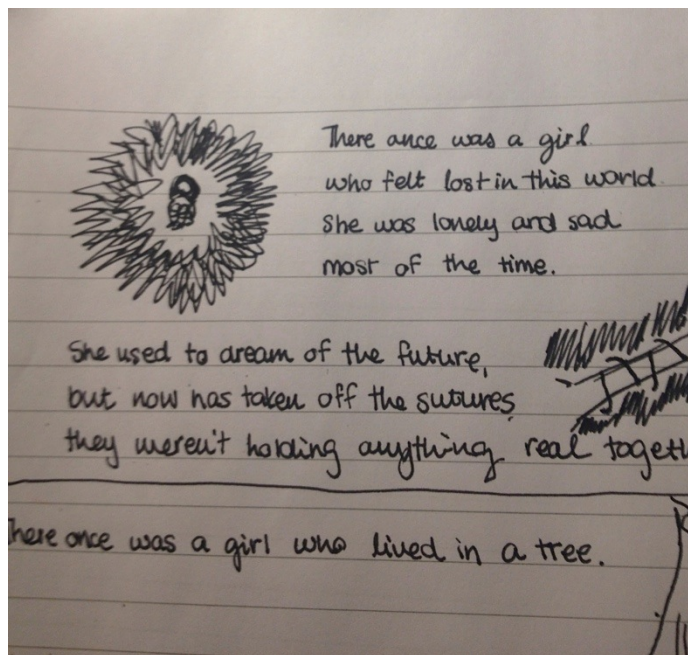 There once was a girl
who felt lost in this world.
She was lonely and sad
most of the time.
She used to dream of the future,
but now has taken off the sutures,
they weren't holding anything real
There once was a girl who lived in a tree.